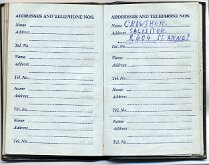 ADDRESSES AND TELEPHONE NOS.
Name
Address
Tel. No.
Name
Address
Tel. No.
Name
Address
Tel. No.
Name
Address
Tel. No.
ADDRESSES AND TELEPHONE NOS.
Name CROWTHER
Address SOLICITOR
ST. ANNES
Tel. No.
Name
Address
Tel. No.
Name
Address
Tel. No.
Name
Address
Tel. No.